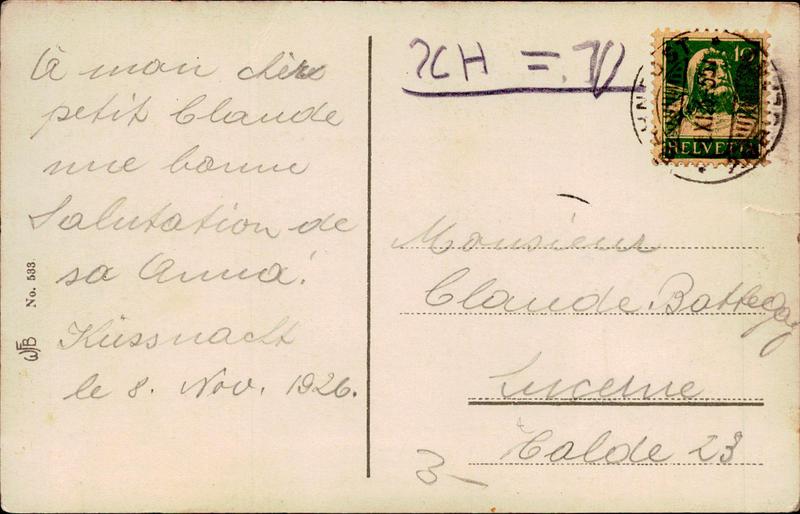 À mon cher
petit Claude
une bonne
Salutation de
sa Anna!
Küssnacht
le 8. Nov. 1926.
No. 533
WFB
10
HELVETIA
Monsieur
Claude Battegay
Lucerne
Halde 23
3-